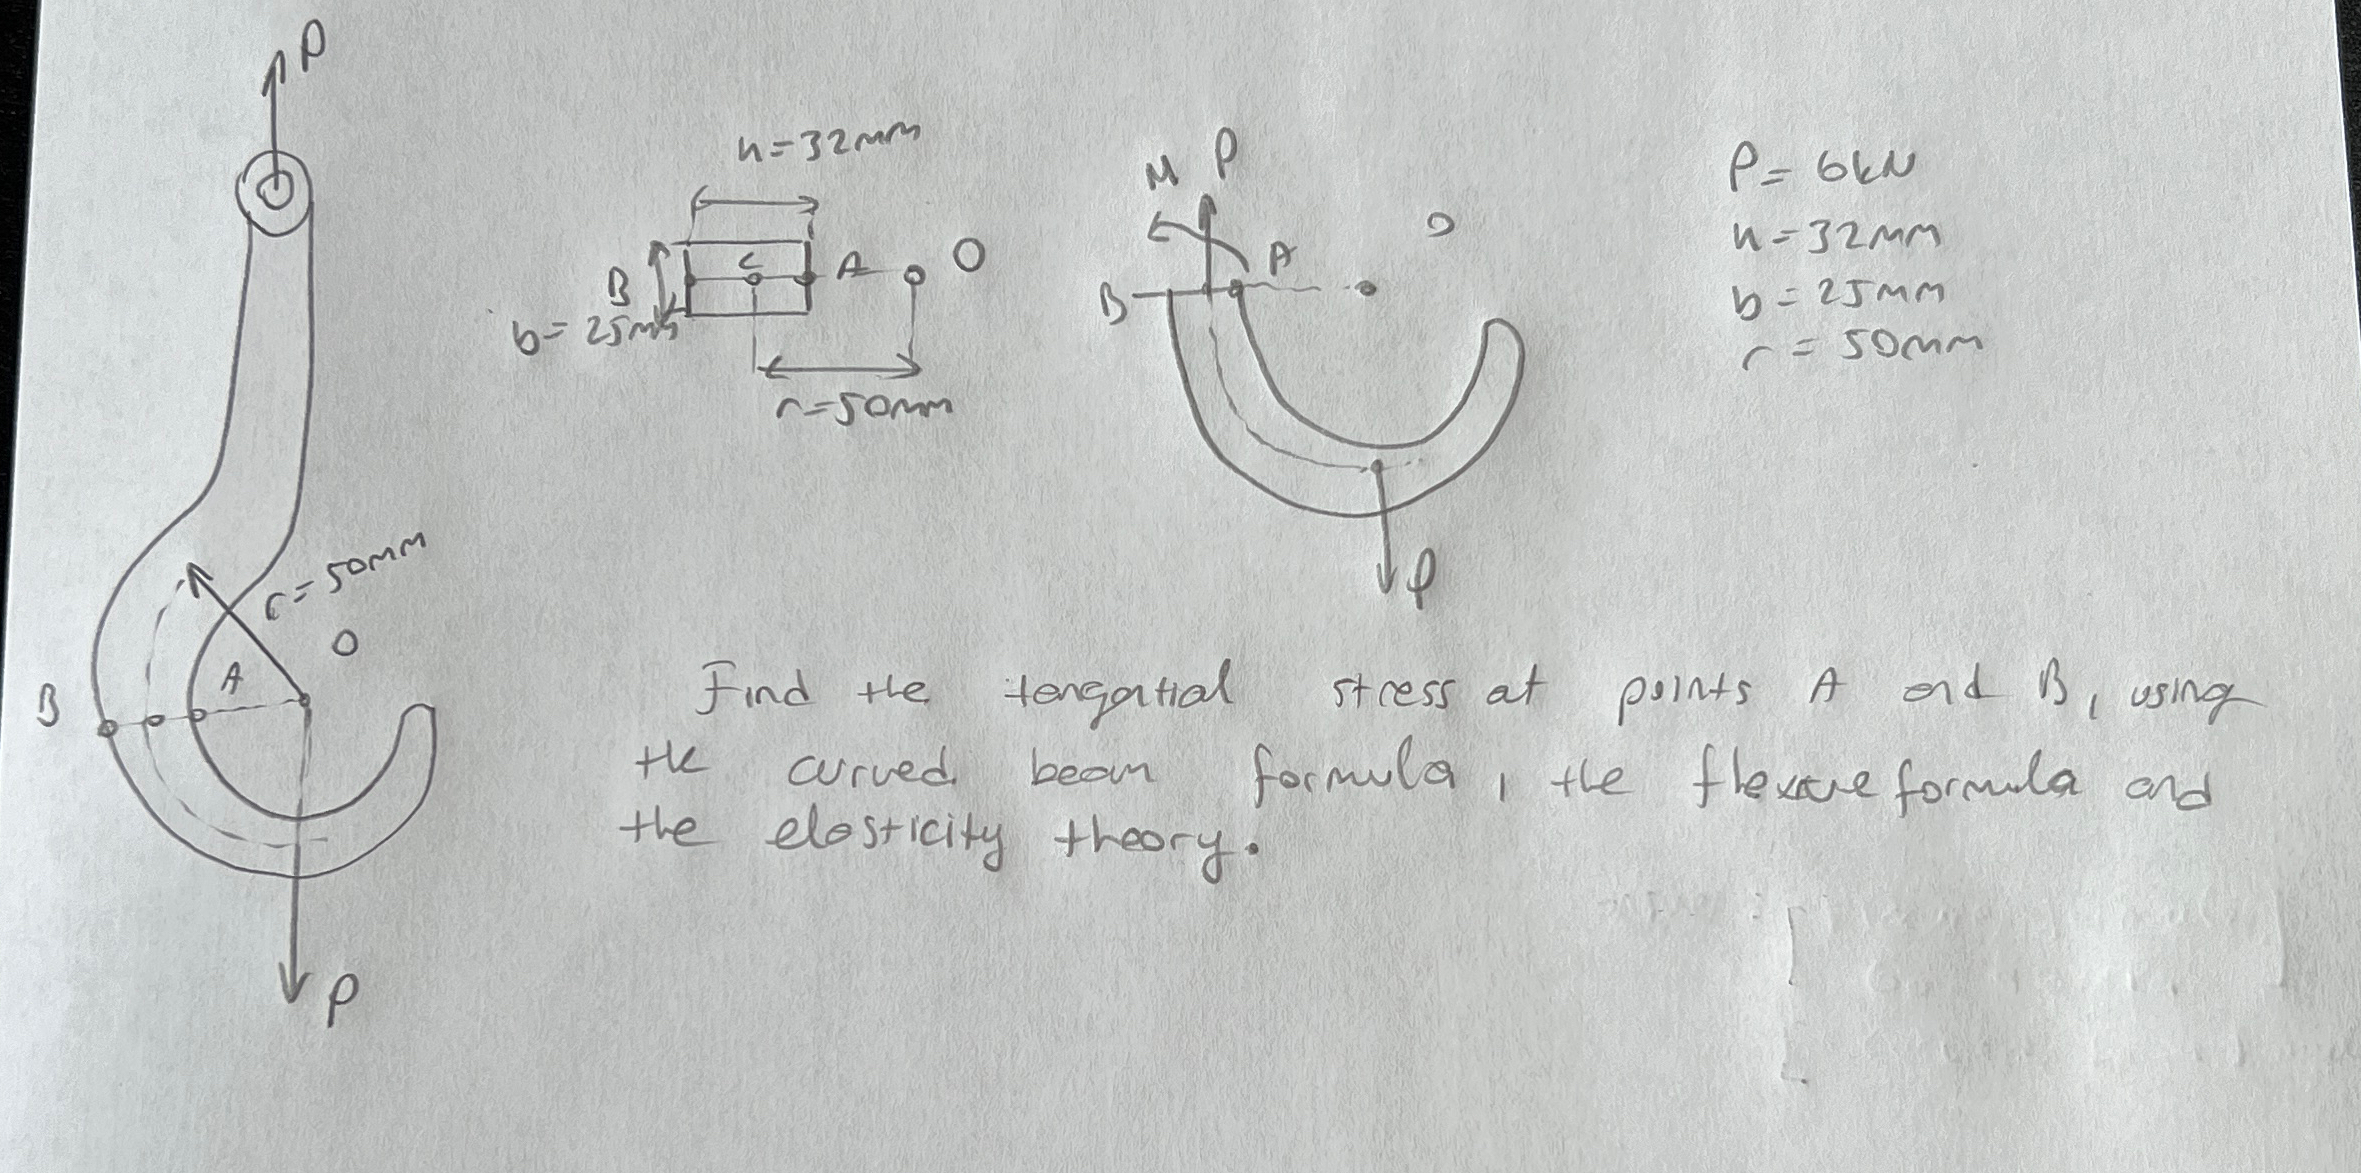 P
h=32mm
C
A
O
B
b=25mm
r=50mm
M P
A
O
B
P
P=6kN
h=32mm
b=25mm
r=50mm
r=50mm
O
A
B
P
Find the tangential stress at points A and B, using
the curved beam formula, the flexure formula and
the elasticity theory.